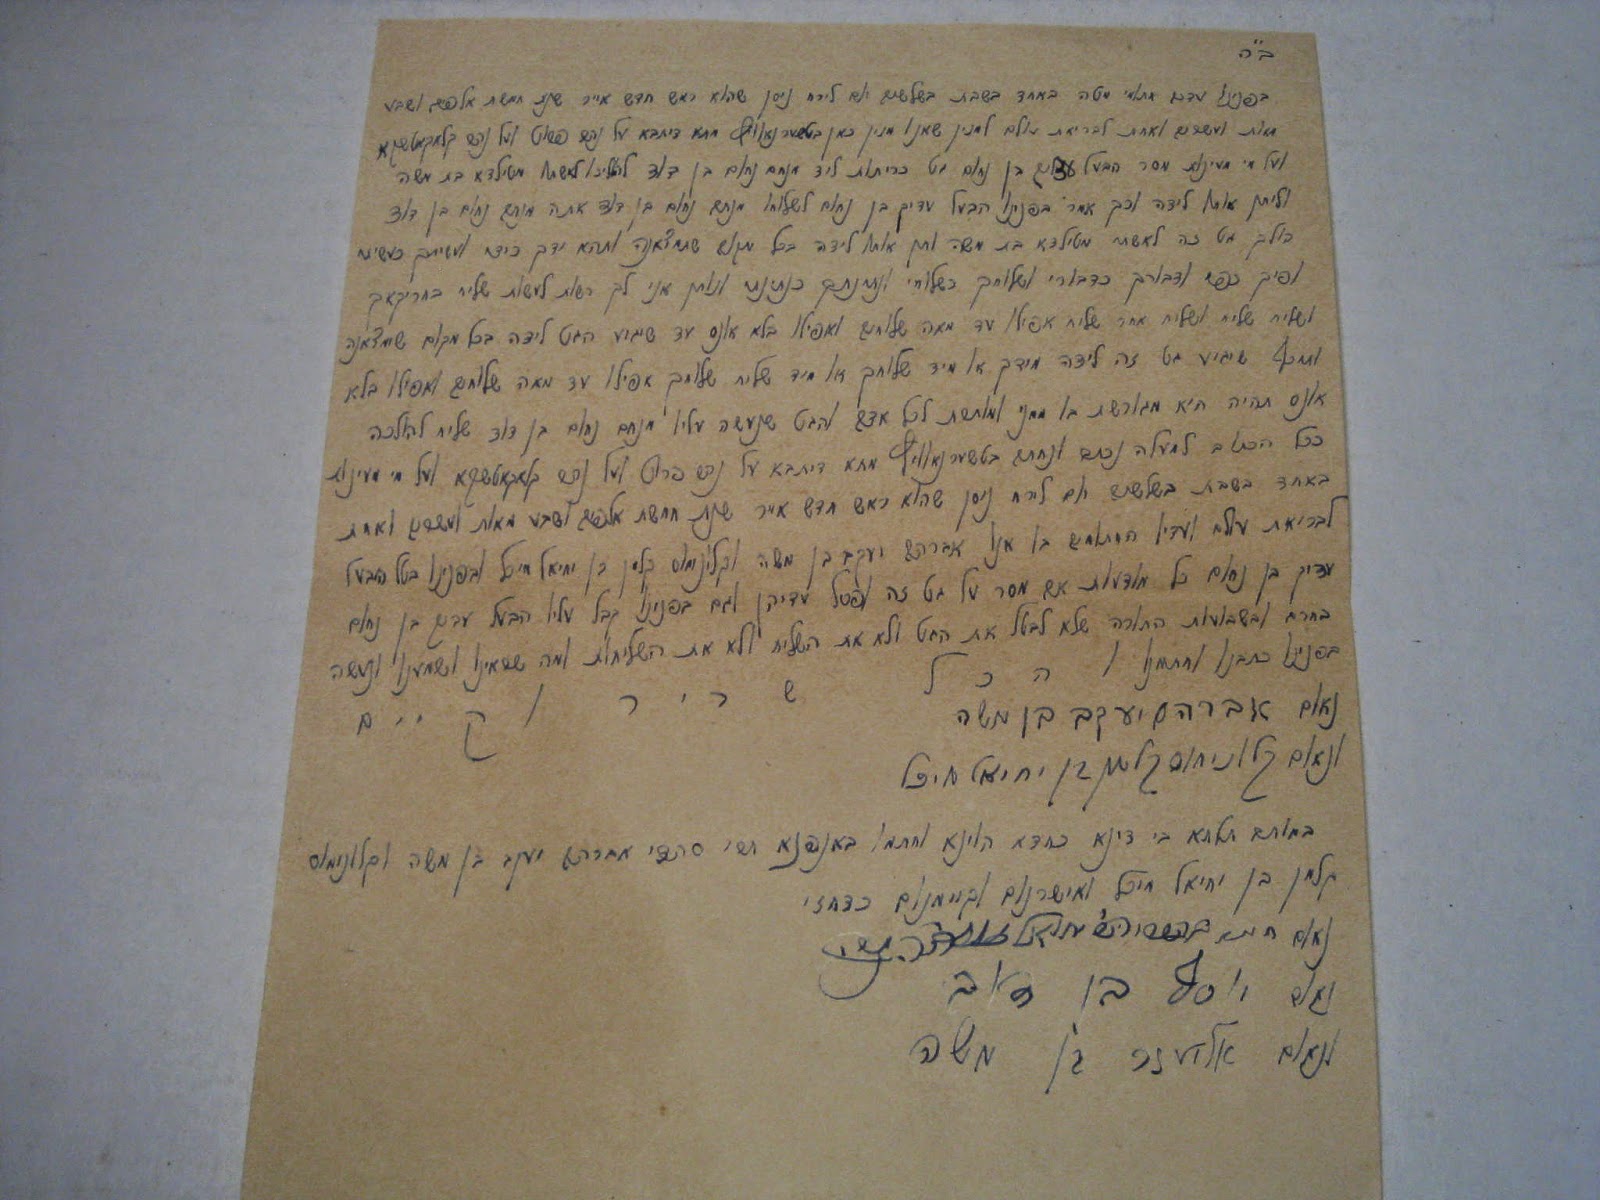 ב"ה
בפנינו עדים חתומי מטה באחד בשבת בשלשים יום לירח ניסן שהוא ראש חדש אייר שנת חמשת אלפים ושבע
מאות ועשרים ואחת לבריאת עולם למנין שאנו מנין כאן בטשערנאוויץ מתא דיתבא על נהר פרוט ועל נהר קלאקאטשקא
ועל מי מעינות מסר הבעל בן נחום גט כריתות ליד מנחם נחום בן דוד להוליכו לאשתו מטילדא בת משה
וליתן אותו לידה וכך אמר בפנינו הבעל בן נחום לשלוחו מנחם נחום בן דוד אתה מנחם נחום בן דוד
הולך גט זה לאשתי מטילדא בת משה ותן אותו לידה בכל מקום שתמצאנה ותהא ידך כידי ועשייתך כעשייתי
ופיך כפי ודבורך כדבורי ושלוחך כשלוחי ונתינתך כנתינתי ונותן אני לך רשות לעשות שליח בחריקאך
ושליח שליח ושליח אחר שליח אפילו עד מאה שלוחים ואפילו בלא אונס עד שיגיע הגט לידה בכל מקום שימצאנה
ותכף שיגיע גט זה לידה מידך או מיד שלוחך או מיד שליח שלוחך אפילו עד מאה שלוחים ואפילו בלא
אונס תהיה היא מגורשת בו ממני ומותרת לכל אדם והגט שנעשה עליו מנחם נחום בן דוד שליח להולכה
ככל הכתוב למעלה נכתב ונחתם בטשערנאוויץ מתא דיתבא על נהר פרוט ועל נהר קלאקאטשקא ועל מי מעינות
באחד בשבת בשלשים יום לירח ניסן שהוא ראש חדש אייר שנת חמשת אלפים ושבע מאות ועשרים ואחת
לבריאת עולם ועדיו החתומים בו אנו אברהם יעקב בן משה וקלונימוס קלמן בן יחיאל מיכל ובפנינו בטל הבעל
בן נחום כל מודעות אשר מסר על גט זה ופסל עדיהן וגם בפנינו קבל עליו הבעל בן נחום
בחרם ובשבועות התורה שלא לבטל את הגט ולא את השליח ולא את השליחות ומה שראינו ושמענו ונעשה
בפנינו כתבנו וחתמנו והכל שריר וקיים
נאום אברהם יעקב בן משה
ונאום קלונימוס קלמן בן יחיאל מיכל
במותב תלתא בי דינא כחדא הוינא וחתמו באנפנא תרי סהדי אברהם יעקב בן משה וקלונימוס
קלמן בן יחיאל מיכל ואישרנוה וקיימנוה כדחזי
נאום חיים
נאום יוסף בן
ונאום אליעזר בן משה